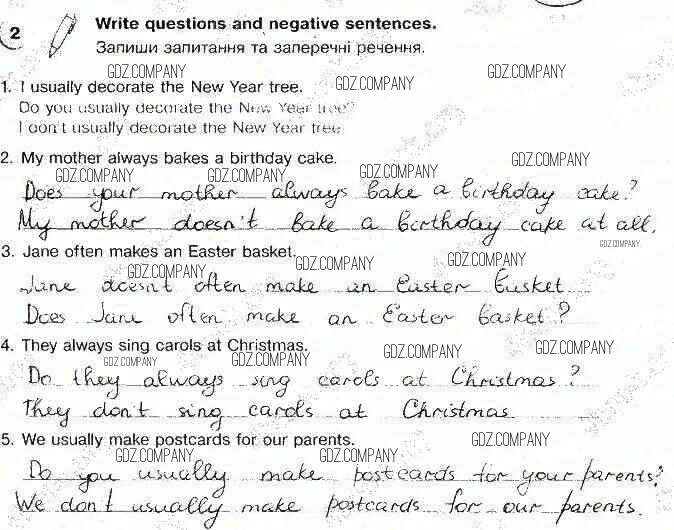 2 Write questions and negative sentences.
Запиши запитання та заперечні речення.
GDZ.COMPANY GDZ.COMPANY GDZ.COMPANY
1. I usually decorate the New Year tree.
Do you usually decorate the New Year tree?
I don't usually decorate the New Year tree
2. My mother always bakes a birthday cake.
GDZ.COMPANY GDZ.COMPANY GDZ.COMPANY GDZ.COMPANY
Does your mother always bake a birthday cake?
My mother doesn't bake a birthday cake at all.
GDZ.COMPANY
3. Jane often makes an Easter basket.
GDZ.COMPANY GDZ.COMPANY GDZ.COMPANY
Jane doesn't often make an Easter busket
Does Jane often make an Easter basket?
4. They always sing carols at Christmas.
GDZ.COMPANY GDZ.COMPANY GDZ.COMPANY GDZ.COMPANY
Do they always sing carols at Christmas?
They don't sing carols at Christmas
5. We usually make postcards for our parents.
GDZ.COMPANY GDZ.COMPANY GDZ.COMPANY
Do you usually make postcards for your parents?
We don't usually make postcards for our parents.